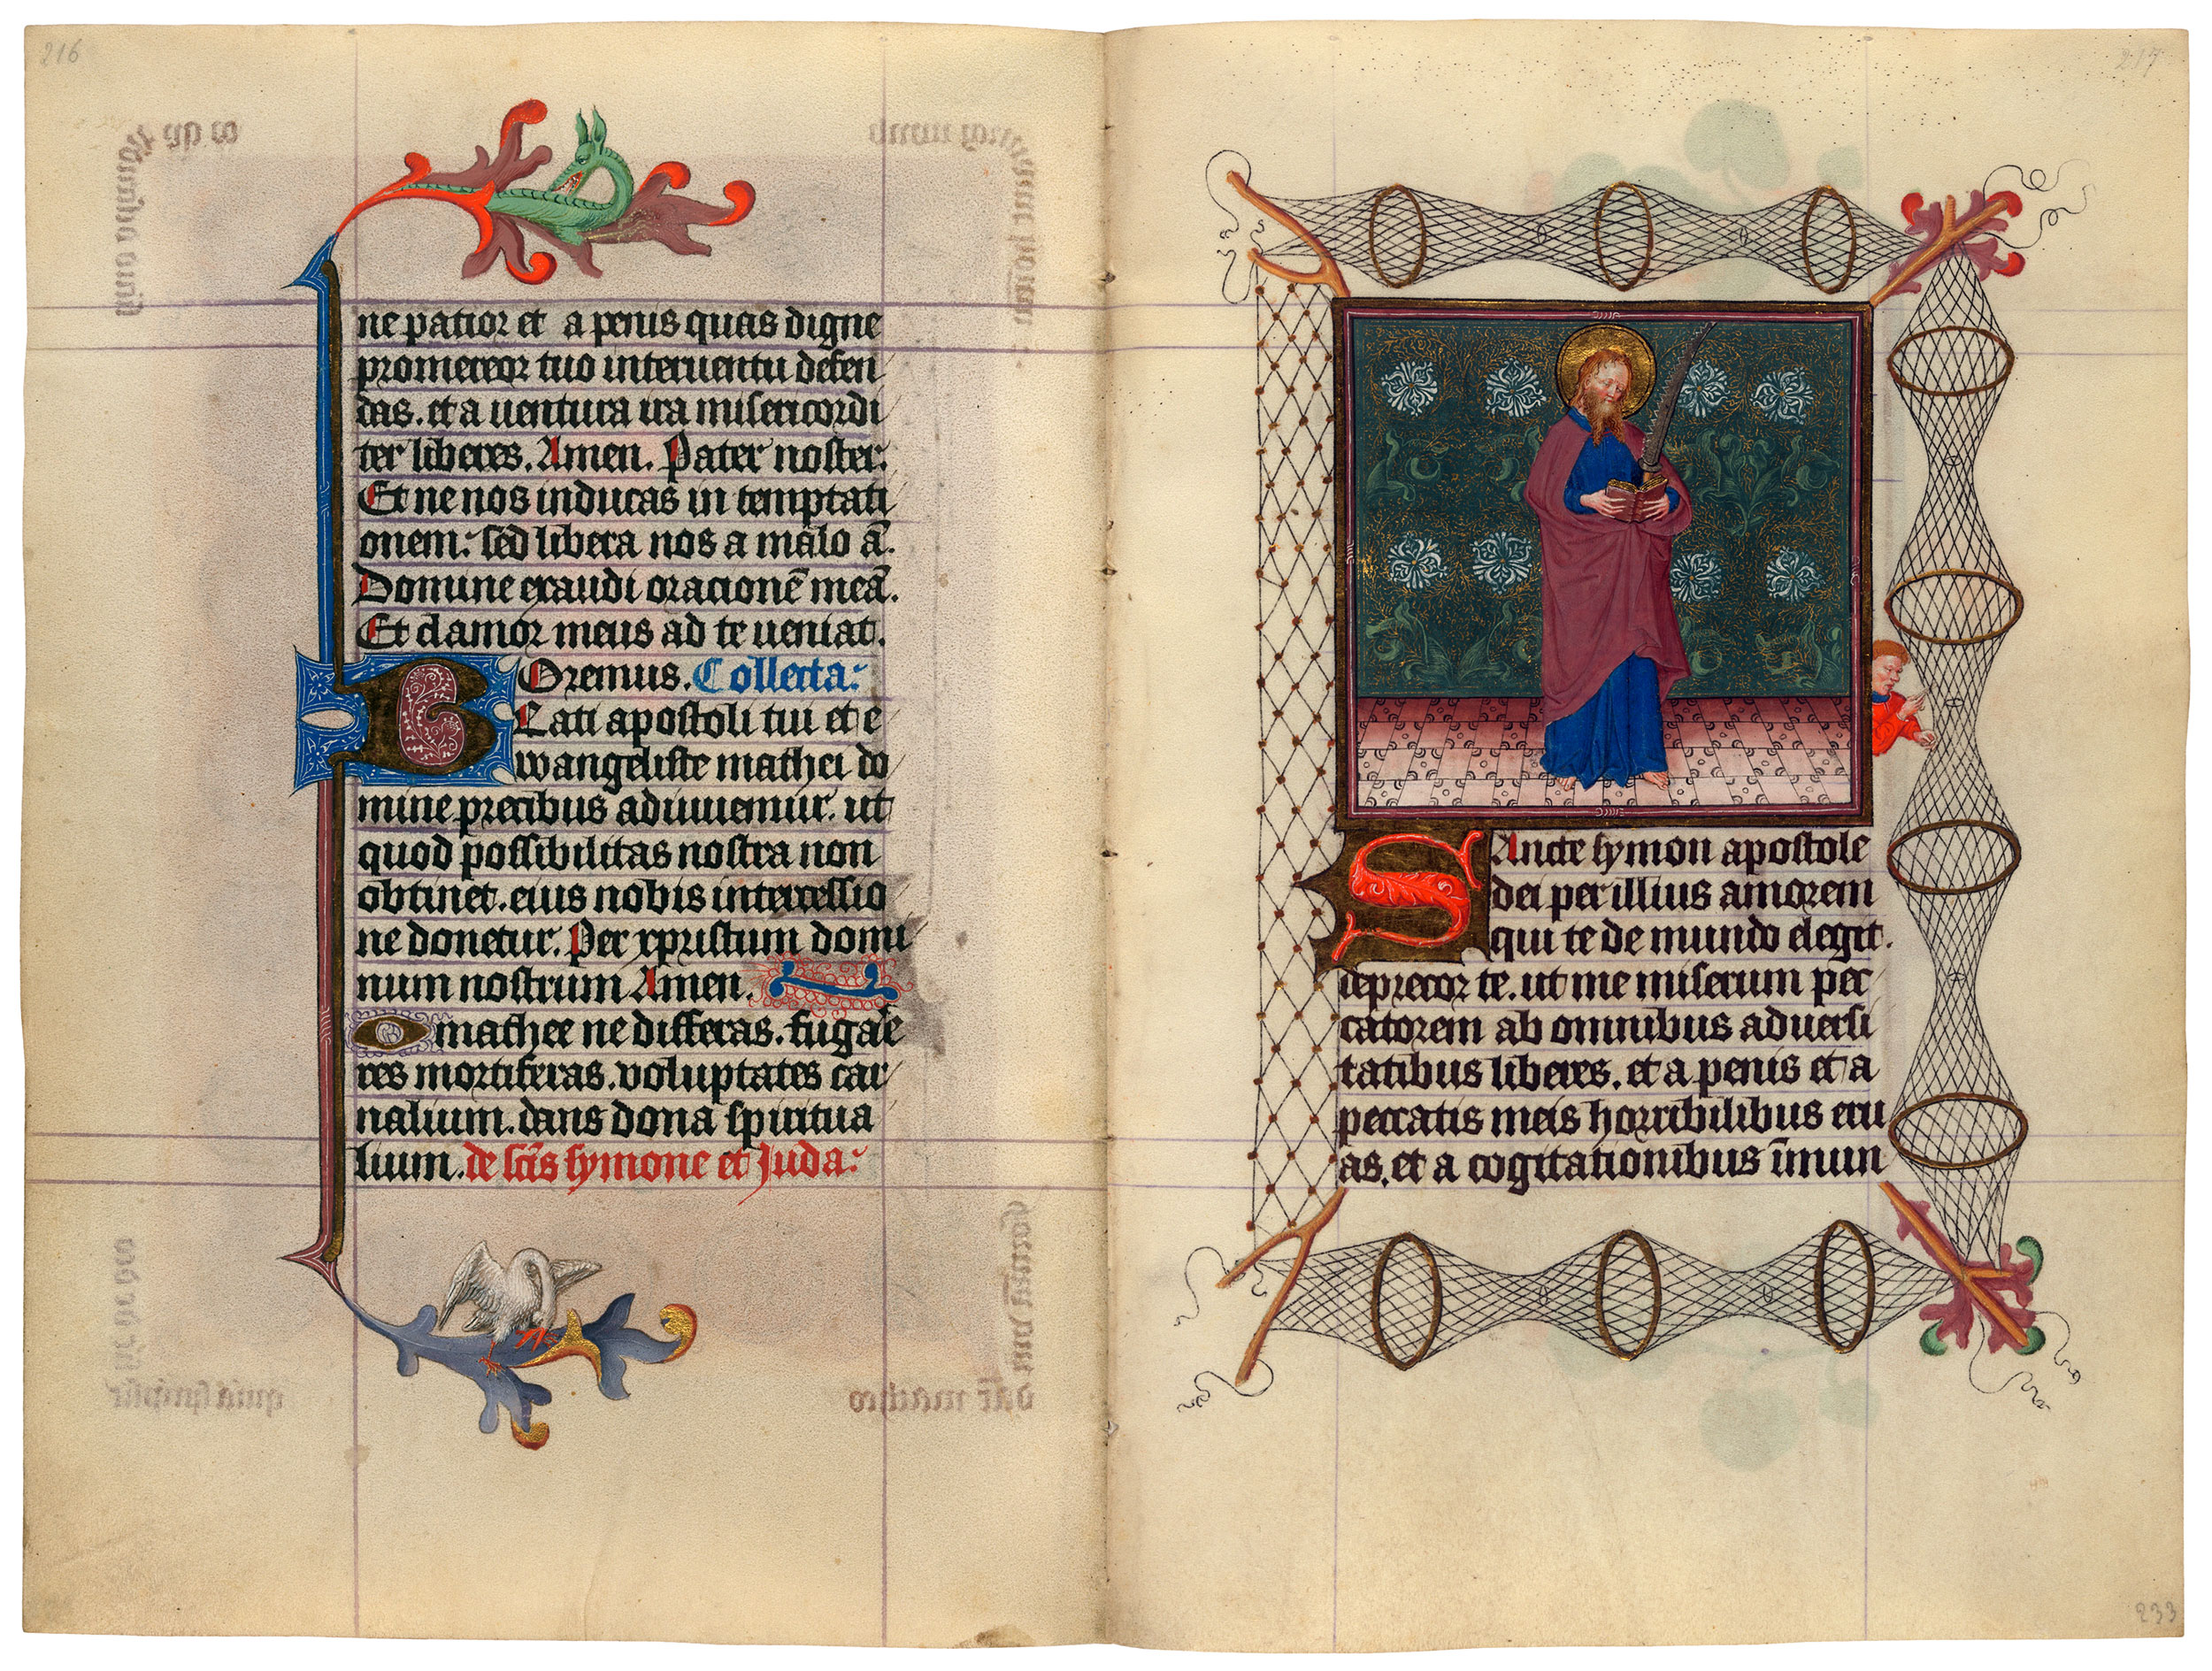 216
ne patior et a penis quas digne
promereor tuo interuentu defen
das. et a uentura ira misericordi
ter liberes. Amen. Pater noster.
Et ne nos inducas in temptati
onem: sed libera nos a malo a͞.
Domine exaudi oracione͞ mea͞.
Et clamor meus ad te ueniat.
Oremus. Collecta:
BEati apostoli tui et e
wangeliste mathei do
mine precibus adiuuemur. ut
quod possibilitas nostra non
obtinet. eius nobis intercessio
ne donetur. Per xpristum domi
num nostrum Amen.
O mathee ne differas. fugare
res mortiferas. voluptates car
nalium. dans dona spiritua
lium. de sc͞is symone et Juda:
217
SAncte symon apostole
dei per illius amorem
qui te de mundo elegit.
deprecor te. ut me miserum pec
catorem ab omnibus aduersi
tatibus liberes. et a penis et a
peccatis meis horribilibus eru
as. et a cogitationibus i͞mun
233